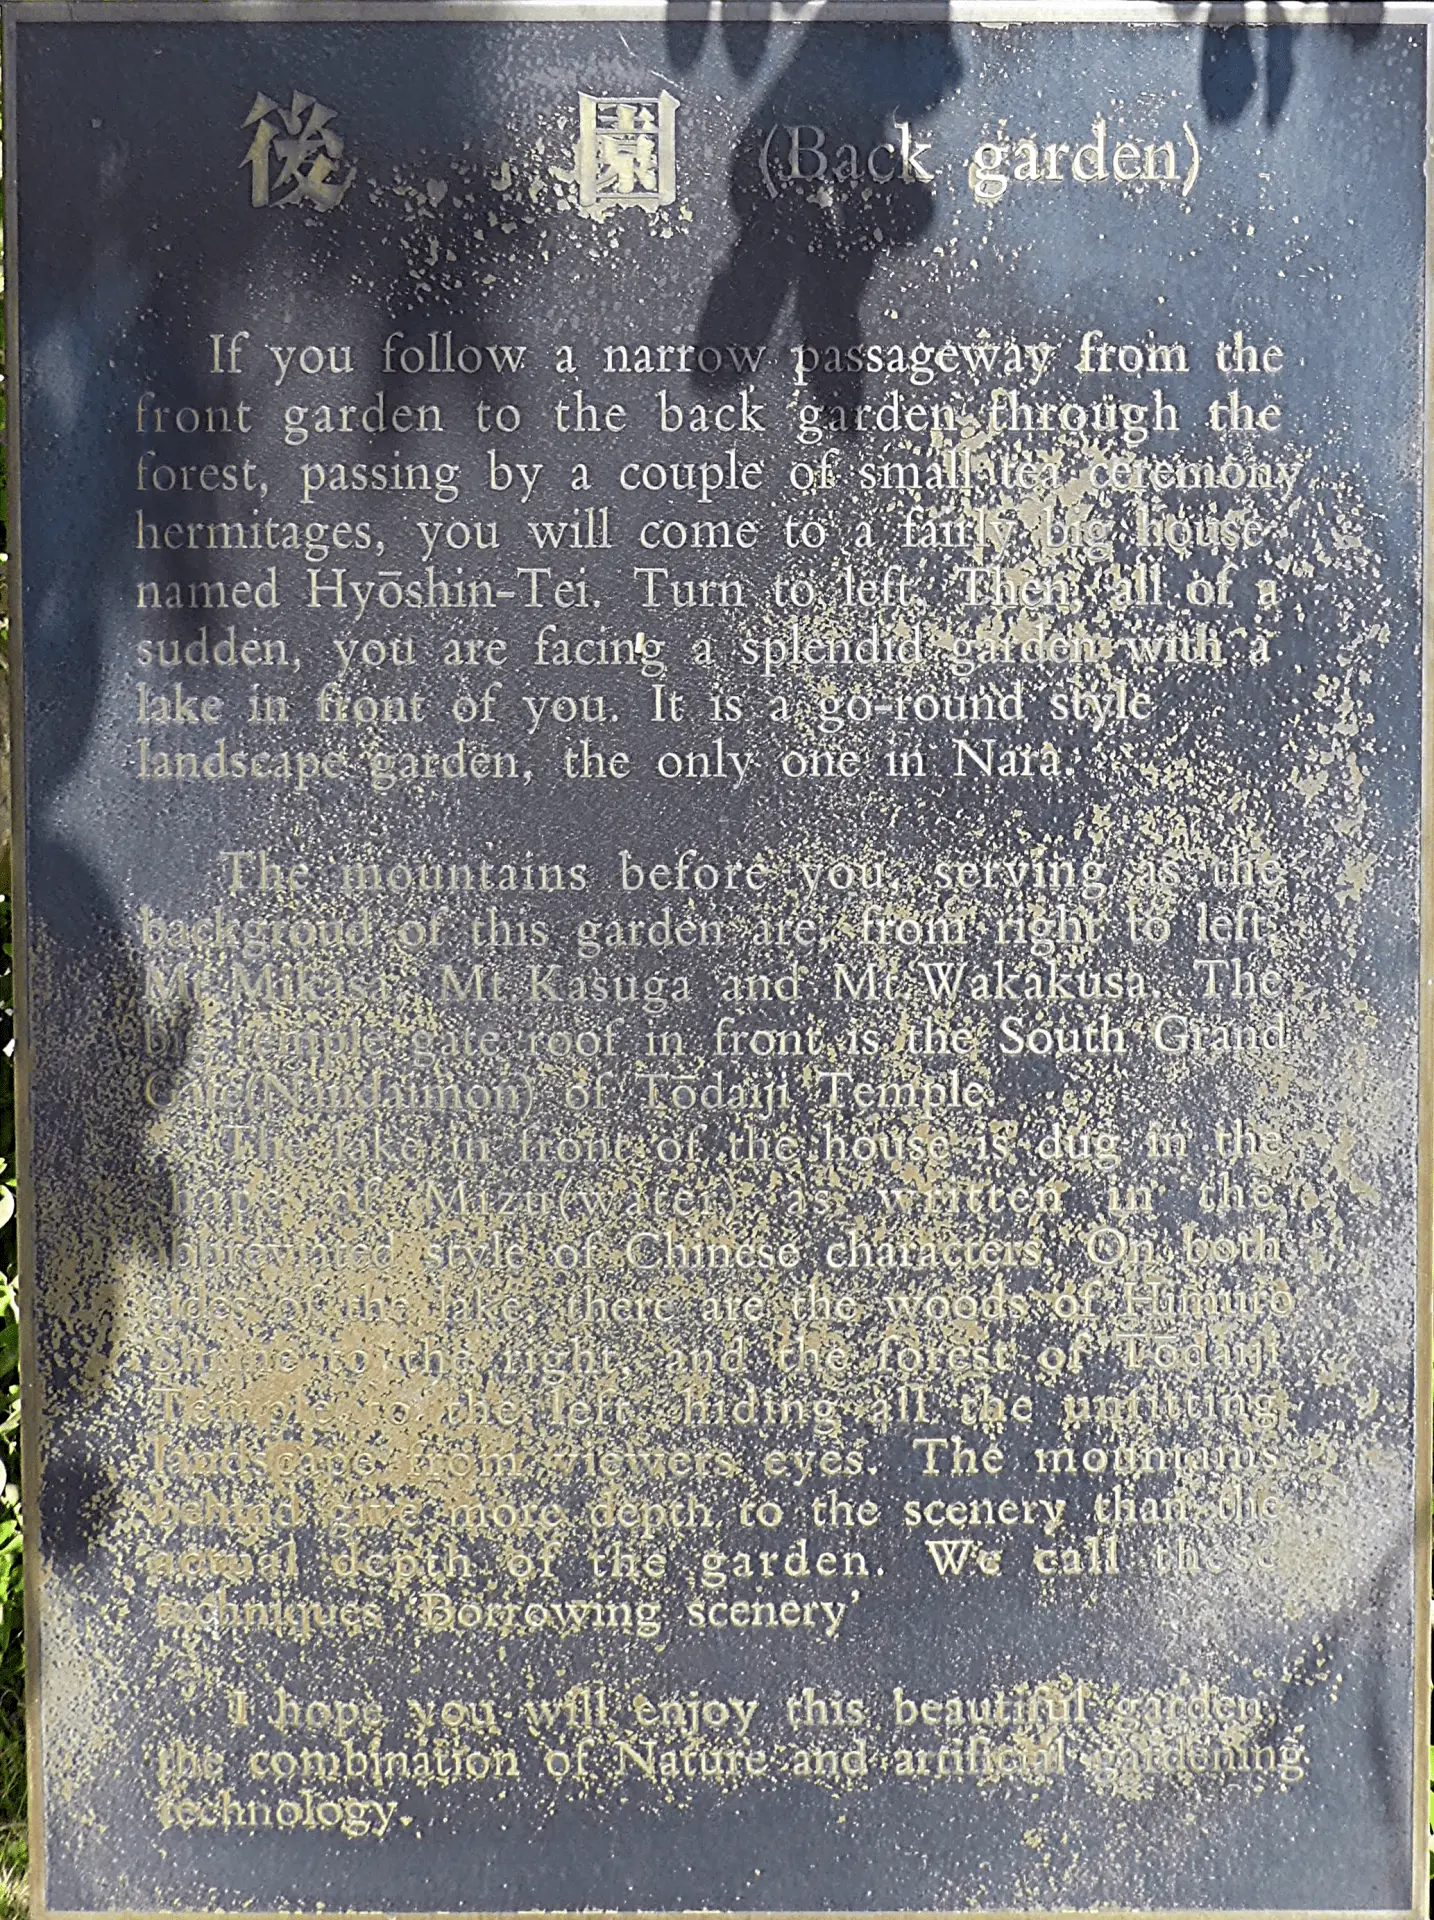 後 園 (Back garden)
If you follow a narrow passageway from the
front garden to the back garden through the
forest, passing by a couple of small tea ceremony
hermitages, you will come to a fairly big house
named Hyōshin-Tei. Turn to left. Then, all of a
sudden, you are facing a splendid garden with a
lake in front of you. It is a go-round style
landscape garden, the only one in Nara.
The mountains before you, serving as the
backgroud of this garden are, from right to left,
Mt. Mikasa, Mt. Kasuga and Mt. Wakakusa. The
big temple gate roof in front is the South Grand
Gate(Nandaimon) of Tōdaiji Temple.
The lake in front of the house is dug in the
shape of Mizu(water) as written in the
abbreviated style of Chinese characters. On both
sides of the lake, there are the woods of Himuro
Shrine to the right, and the forest of Tōdaiji
Temple to the left, hiding all the unfitting
landscape from viewers eyes. The mountains
behind give more depth to the scenery than the
actual depth of the garden. We call these
techniques 'Borrowing scenery'
I hope you will enjoy this beautiful garden,
the combination of Nature and artificial gardening
technology.